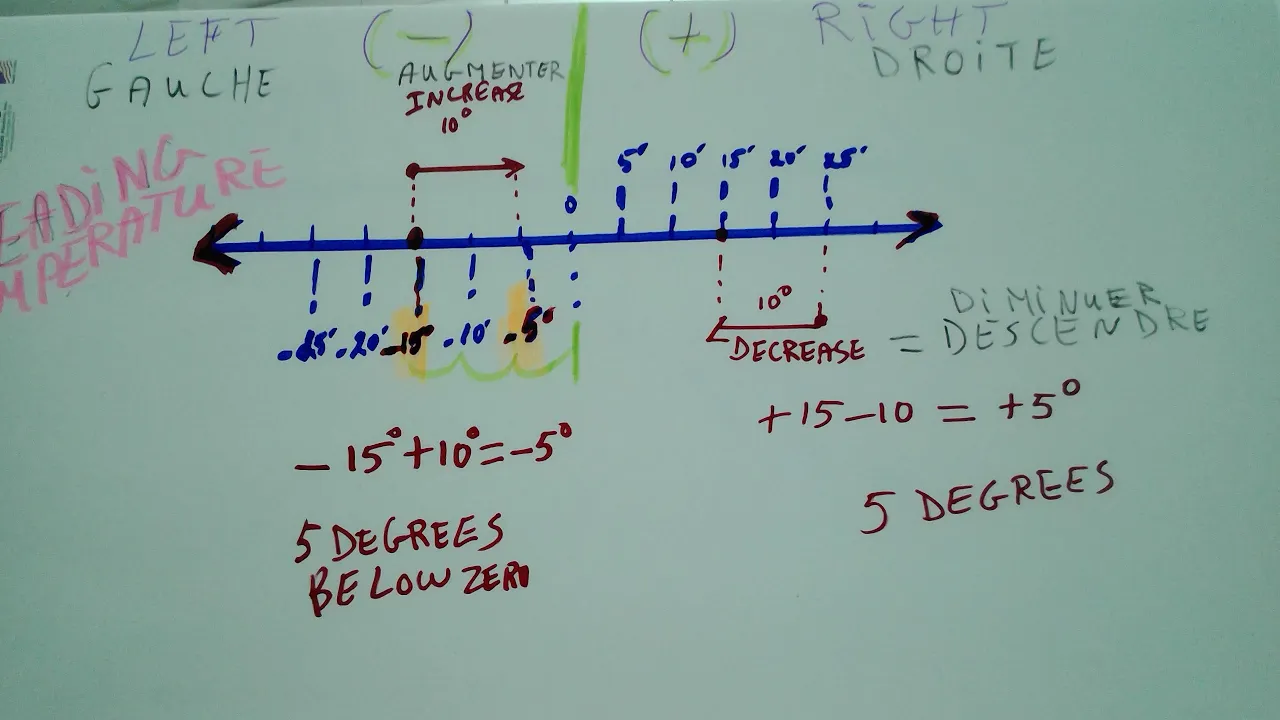 LEFT (-) (+) RIGHT
GAUCHE DROITE
AUGMENTER
INCREASE
10°
EADING
MPERATURE
5° 10° 15° 20° 25°
0
-25° -20° -15° -10° -5°
10°
DECREASE = DIMINUER
DESCENDRE
-15°+10°=-5°
+15-10 = +5°
5 DEGREES
BELOW ZERO
5 DEGREES